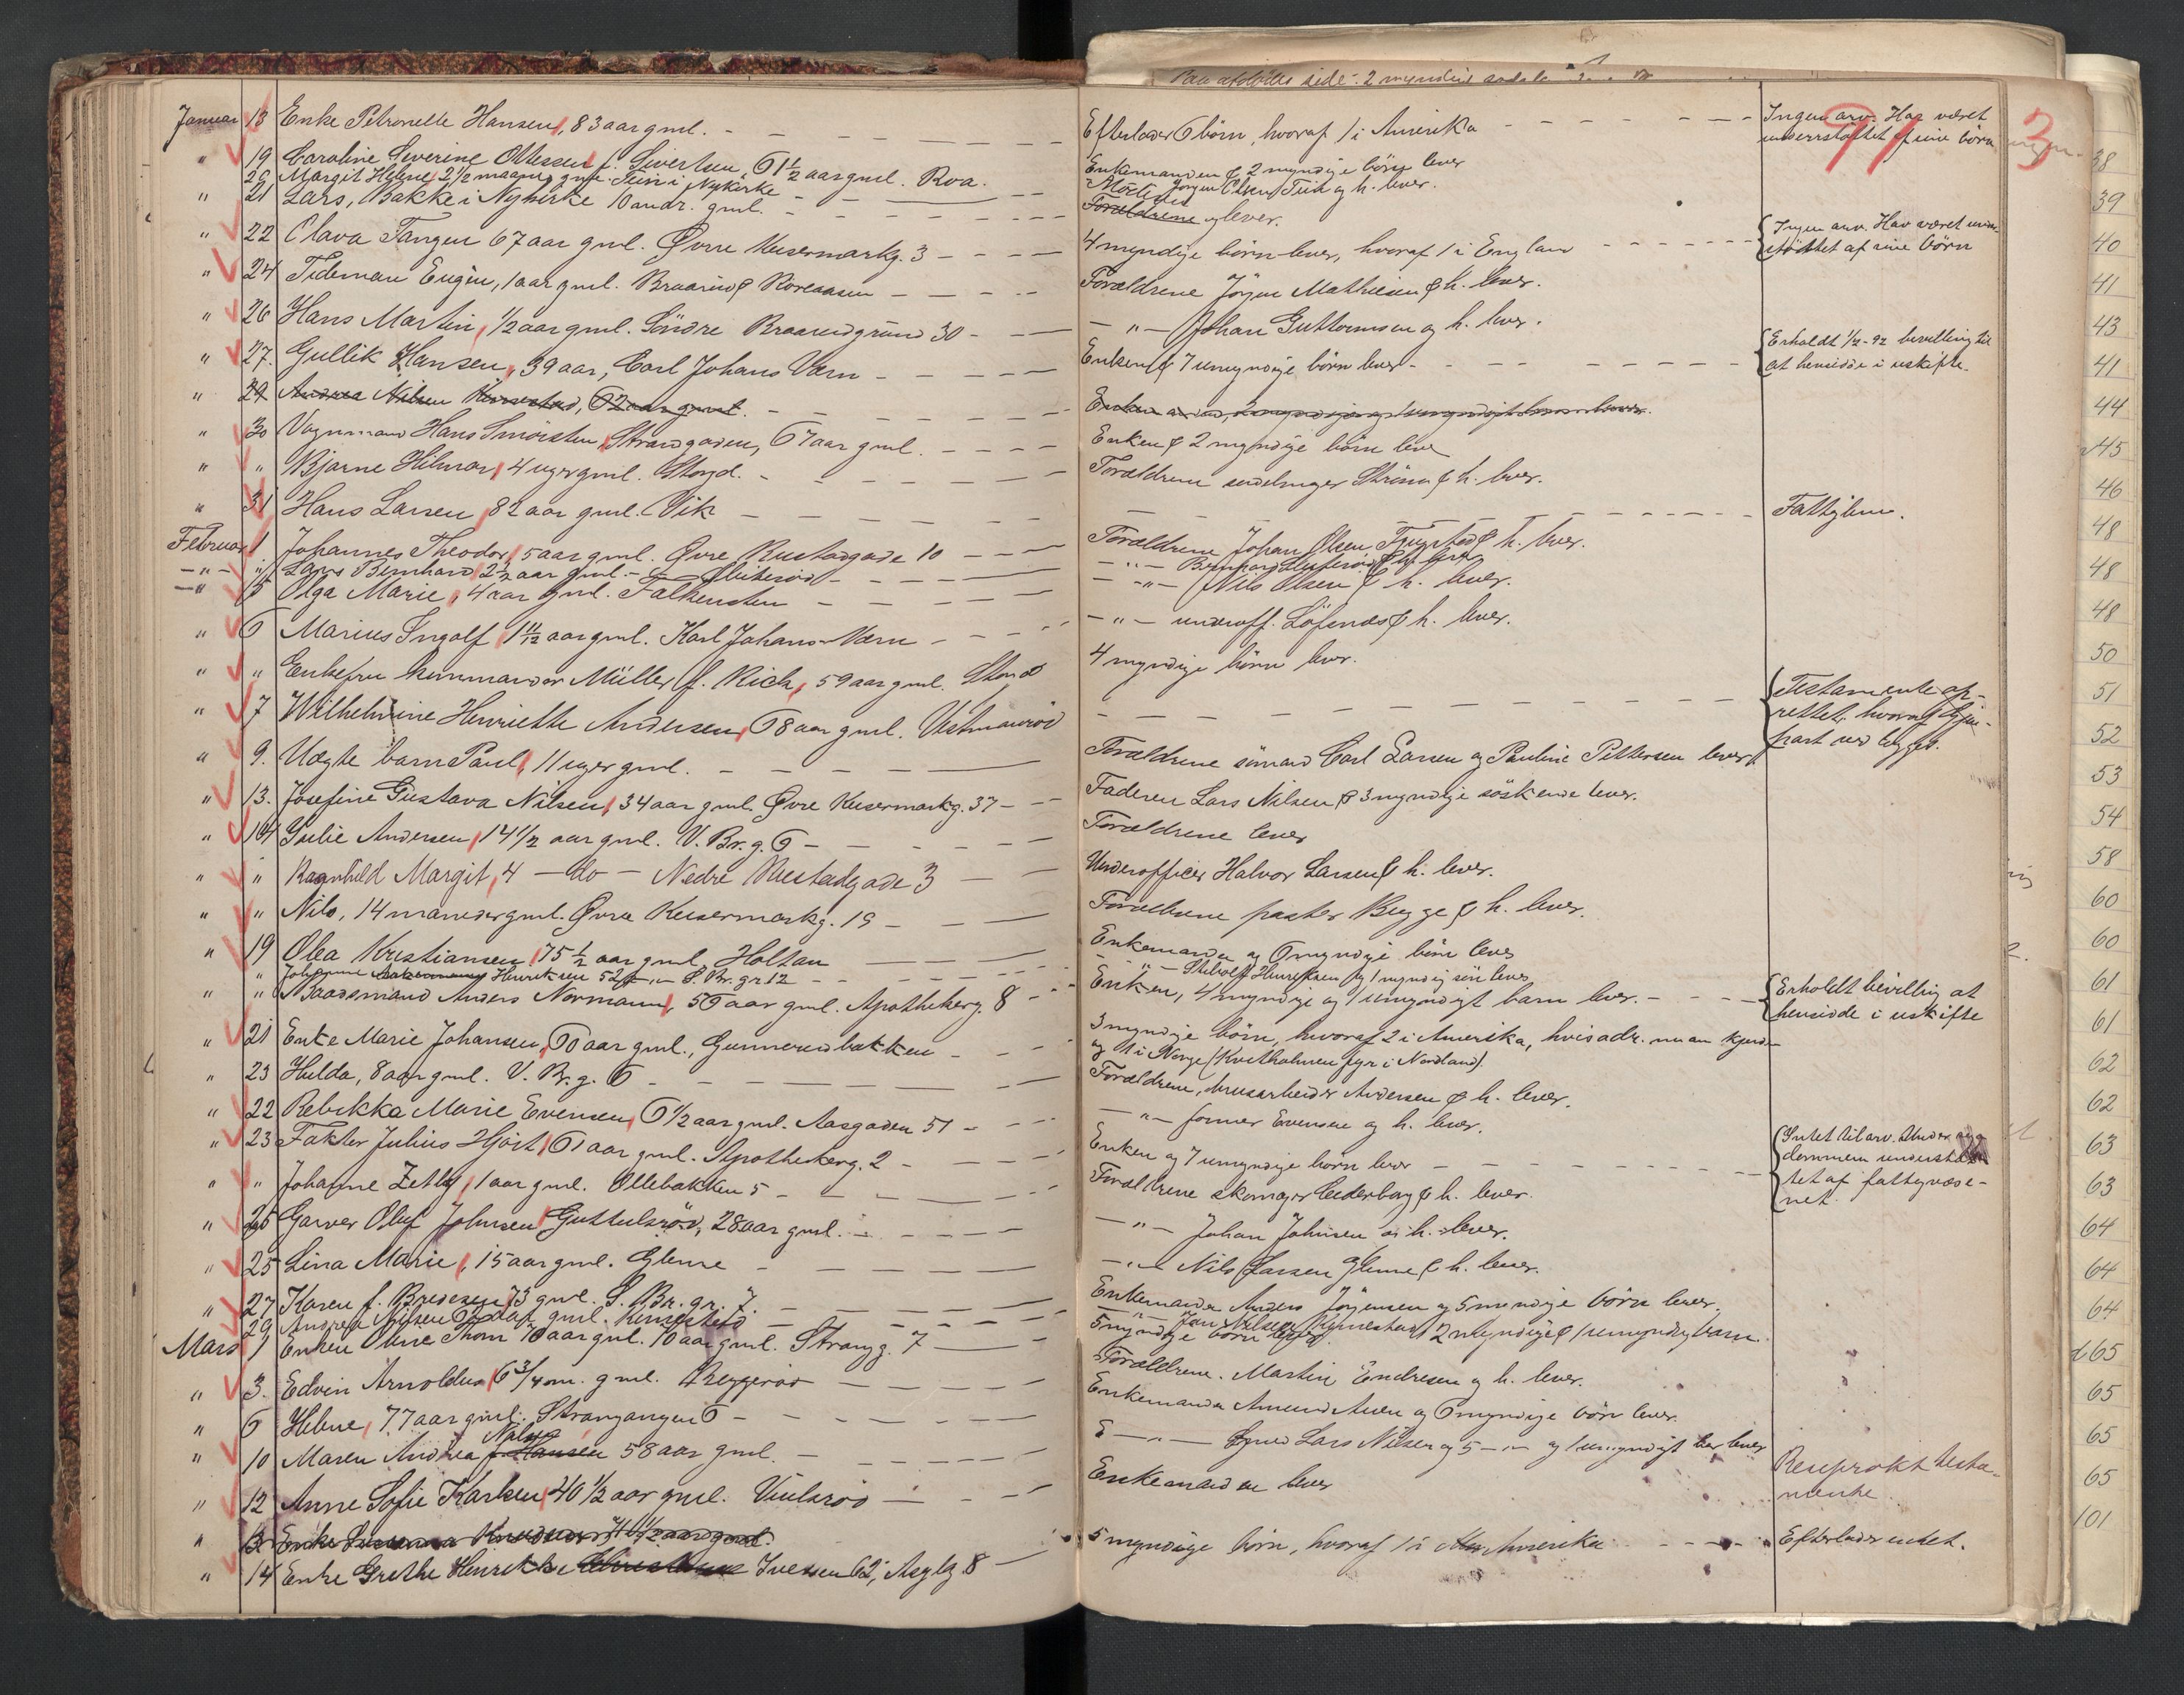 Januar 13 Enke Petronelle Hansen, 83 aar gml. - Efterlader 6 börn, hvoraf 1 i Amerika - Ingen arv. Har været
understöttet af sine börn
" 19 Caroline Severine Ottesen f. Sivertsen, 61 1/2 aar gml. Roa. Enkemanden & 2 myndige börn lever
20 Margit Helene 2 1/2 maaned gml. Tein i Nykirke Jörgen Olsen Tein og h. lever.
" 21 Lars, Bakke i Nykirke 10 aar. gml. Forældrene lever.
" 22 Clava Tangen 67 aar gml. Övre Keisermarkg. 3 - 4 myndige börn lever, hvoraf 1 i England - Ingen arv. Har været under-
stöttet af sine börn
" 24 Tideman Eugen, 1 aar gml. Braarud Forældrene Jörgen Mathiesen & h. lever.
" 26 Hans Martin, 1/2 aar gml. Söndre Braarudgrund 30 - - " - Johan Guttormsen og h. lever.
" 27. Gullik Hansen, 39 aar, Carl Johans Værn - Enken & 7 umyndige börn lever - Erholdt 1/2-92 bevilling til
at hensidde i uskifte.
" 29 Andrea Nilsen 62 aar gml. -
" 30 Vognmand Hans Smörsten, Strandgaden, 67 aar gml. - Enken & 2 myndige börn lever
" " Bjarne Hilmar, 4 uger gml. - Forældrene & h. lever.
" 31 Hans Larsen 82 aar gml. Vik - Fattiglem.
Februar 1. Johannes Theodor, 5 aar gml. Övre Rustadgade 10 - Forældrene Johan Olsen & h. lever.
- " - " Lars Bernhard 2 1/2 aar gml. - - " - Bernhard
- " 5 Olga Marie, 4 aar gml. Falkensten - - " - Nils Olsen & h. lever.
" 6 Marius Ingolf 1 11/12 aar gml. Karl Johans Værn - - " - underoff. Löfsnæs & h. lever.
" " Enkefru kommandör Müller f. Rich, 59 aar gml. 4 myndige börn lever.
" 7 Wilhelmine Henriette Andersen, 68 aar gml. Vestmanröd - Testamente op-
rettet, hvoraf gjen-
part vedlegges.
" 9. Uægte barn Paul, 11 uger gml. - Forældrene sömand Carl Larsen og Pauline Pettersen lever
" 13. Josefine Gustava Nilsen, 34 aar gml. Övre Keisermarkg. 37 - Faderen Lars Nilsen & 3 myndige söskende lever.
" 14 Julie Andersen, 14 1/2 aar gml. V. Br. g. 6 - Forældrene lever
" " Ragnhild Margit, 4 - do - Nedre Rustadgade 3 Underofficer Halvor Larsen & h. lever.
" " Nils, 14 maaneder gml. Övre Keisermarkg. 19 - Forældrene pastor Bugge & h. lever.
" 19 Olea Kristiansen 75 1/2 aar gml. Holtan Enkemanden og 6 myndige börn lever
" Johanne Henriksen 52 - " - S. Br. gr 12 - " - Henriksen og 1 myndig sön lever
" " Baadsmand Anders Normann, 56 aar gml. Apothekerg. 8 - Enken, 4 myndige og 1 umyndigt barn lever. - Erholdt bevilling at
hensidde i uskifte
" 21 Enke Marie Johansen, 60 aar gml., Gunnerudbakken - 3 myndige börn, hvoraf 2 i Amerika, hvis adr. man kjender
og 1 i Norge (Kvitholmen fyr i Nordland).
" 23 Hulda, 8 aar gml. V. Br. g. 6 - Forældrene, brusarbeider Andersen & h. lever.
" 22 Rebekka Marie Evensen, 6 1/2 aar gml. Aasgaden 51 - - " - former Evensen og h. lever.
" 23 Faktor Julius Hjort, 61 aar gml. Apothekerg. 2 - Enken og 7 umyndige börn lever - Intet til arv. Under syg-
dommen understöt-
tet af fattigvæse-
net.
" " Johanne Zetly, 1 aar gml. Ollebakken 5 - Forældrene skomager Cederborg & h. lever.
" 25 Garver Oluf Johnsen Guttulsröd, 28 aar gml. - - " - Johan Johnsen & h. lever.
" 25 Lina Marie, 15 aar gml. Glenne - - " - Nils Larsen Glenne & h. lever.
" 27 Karen f. Bredesen 73 gml. S. Br. gr. 7. - Enkemanden Anders Jörgensen og 5 myndige börn lever.
29 Andrea Nilsen 62 aar gml. - " - Jan Nilsen 2 myndige & 1 umyndig barn.
Mars 1 Enken Oline Thom 70 aar gml. Strangg. 7 5 myndige börn lever.
" 3. Edvin Arnoldus 6 3/4 m. gml. Forældrene. Martin Endresen og h. lever.
" 6 Helene, 77 aar gml. Strangangen 6 - Enkemanden Amund og 6 myndige börn lever.
" 10 Maren Andrea f. Hansen 58 aar gml. - E - " - Lars Nilsen og 5 - " - og 1 umyndigt lever
" 12 Anne Sofie Karlsen, 40 1/2 aar gml. - Enkemanden lever Resiprokt testa-
mente.
" 13 Enke
" 14 Enke Grethe Henrikke Iversen 62, 8 5 myndige börn, hvoraf 1 i Amerika - Efterlader intet.
91
3
38
39
40
41
43
41
44
45
46
48
48
48
50
51
52
53
54
58
60
60
61
61
62
62
63
63
64
64
64
65
65
65
65
101